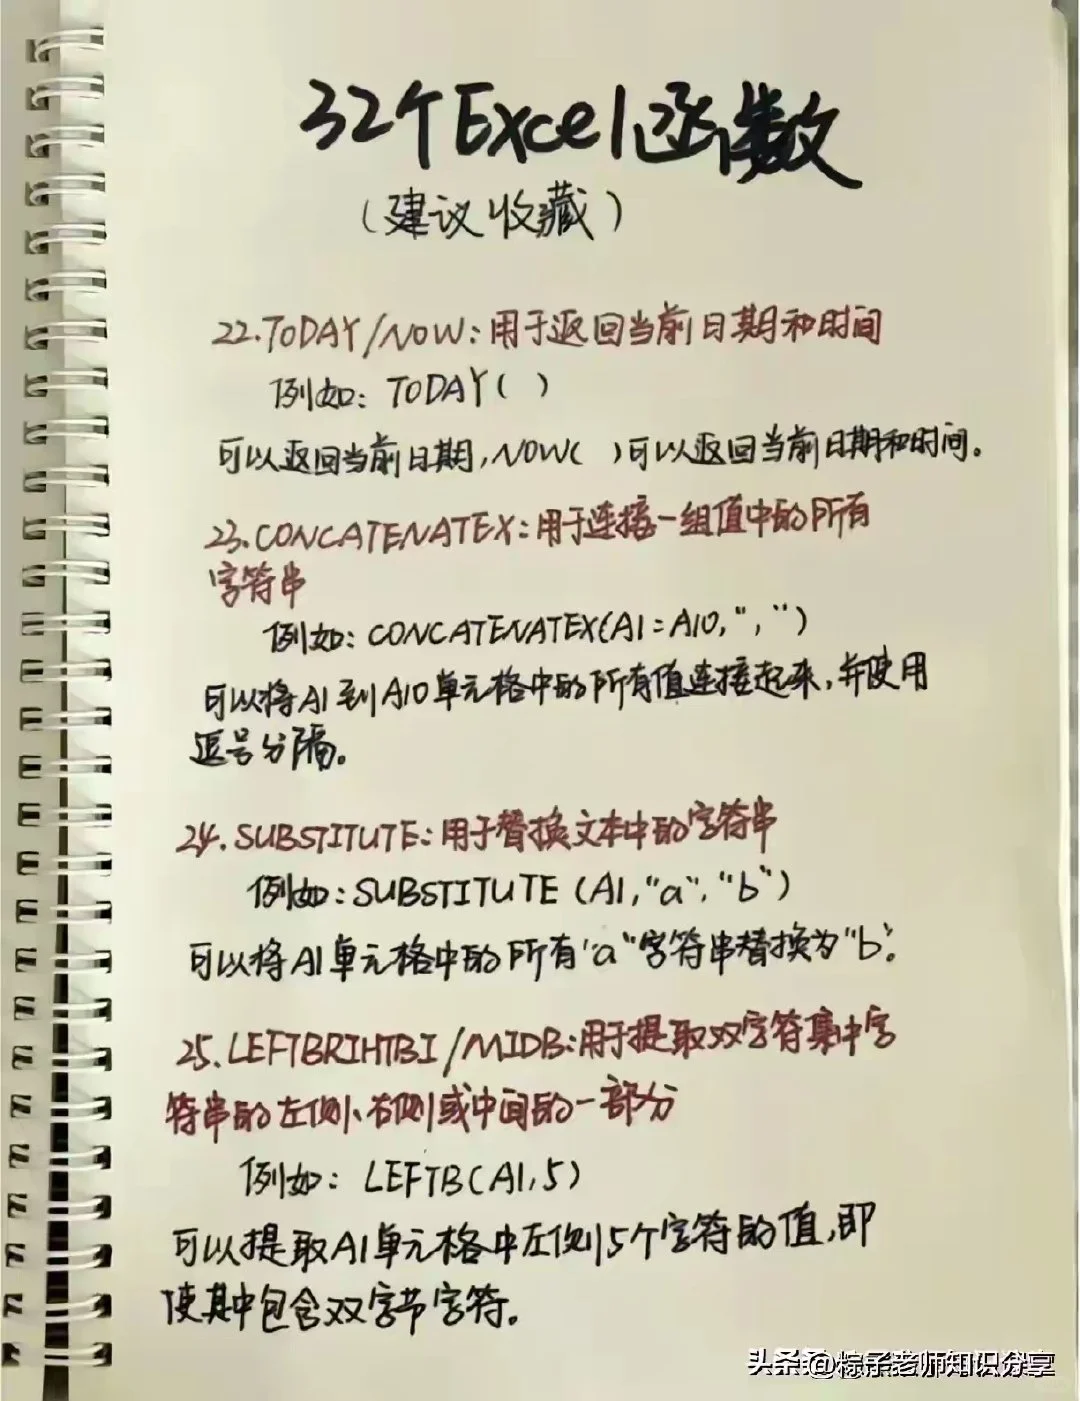 32个Excel函数
（建议收藏）
22.TODAY/NOW:用于返回当前日期和时间
例如：TODAY( )
可以返回当前日期,NOW( )可以返回当前日期和时间。
23.CONCATENATEX:用于连接一组值中的所有
字符串
例如:CONCATENATEX(A1:A10,",")
可以将A1到A10单元格中的所有值连接起来,并使用
逗号分隔。
24.SUBSTITUTE:用于替换文本中的字符串
例如:SUBSTITUTE(A1,"a","b")
可以将A1单元格中的所有"a"字符串替换为"b"。
25.LEFTBRIHTBI/MIDB:用于提取双字符集中字
符串的左侧、右侧或中间的一部分
例如：LEFTB(A1,5)
可以提取A1单元格中左侧5个字符的值,即
使其中包含双字节字符。
头条@粽子老师知识分享